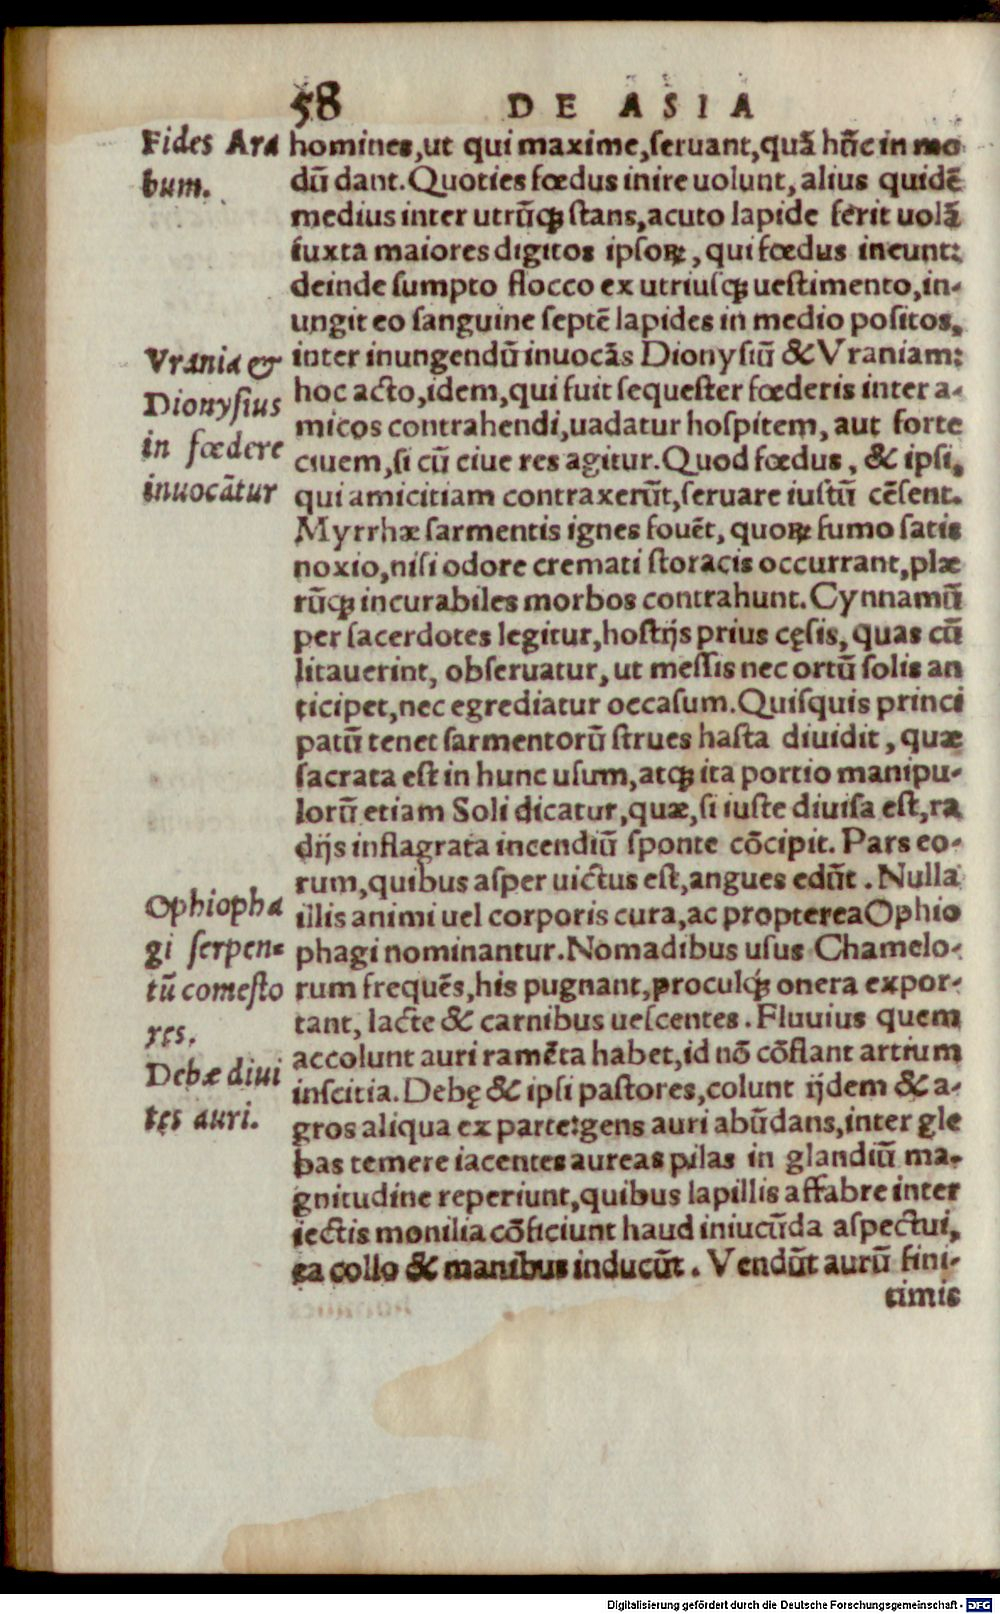 58 DE ASIA
Fides Ara
bum.
homines, ut qui maxime, ſeruant, quã hũc in mo
dũ dant. Quoties fœdus inire uolunt, alius quidẽ
medius inter utrũqꝫ ſtans, acuto lapide ferit uolã
iuxta maiores digitos ipſoꝝ, qui fœdus ineunt:
deinde ſumpto flocco ex utriuſqꝫ ueſtimento, in-
ungit eo ſanguine ſeptẽ lapides in medio poſitos,
Vrania &
Dionyſius
in fœdere
inuocãtur
inter inungendũ inuocãs Dionyſiũ & Vraniam:
hoc acto, idem, qui fuit ſequeſter fœderis inter a-
micos contrahendi, uadatur hoſpitem, aut forte
ciuem, ſi cũ ciue res agitur. Quod fœdus, & ipſi,
qui amicitiam contraxerũt, ſeruare iuſtũ cẽſent.
Myrrhæ ſarmentis ignes fouẽt, quoꝝ fumo ſatis
noxio, niſi odore cremati ſtoracis occurrant, plæ
rũqꝫ incurabiles morbos contrahunt. Cynnamũ
per ſacerdotes legitur, hoſtijs prius cęſis, quas cũ
litauerint, obſeruatur, ut meſſis nec ortũ ſolis an
ticipet, nec egrediatur occaſum. Quiſquis princi
patũ tenet ſarmentorũ ſtrues haſta diuidit, quæ
ſacrata eſt in hunc uſum, atqꝫ ita portio manipu-
lorũ etiam Soli dicatur, quæ, ſi iuſte diuiſa eſt, ra
dijs inflagrata incendiũ ſponte cõcipit. Pars eo-
rum, quibus aſper uictus eſt, angues edũt. Nulla
Ophiopha
gi ſerpen-
tũ comeſto
ręs.
illis animi uel corporis cura, ac propterea Ophio
phagi nominantur. Nomadibus uſus Chamelo-
rum frequẽs, his pugnant, proculqꝫ onera expor-
tant, lacte & carnibus ueſcentes. Fluuius quem
Debæ diui
tęs auri.
accolunt auri ramẽta habet, id nõ cõflant artium
inſcitia. Debę & ipſi paſtores, colunt ijdem & a-
gros aliqua ex parte: gens auri abũdans, inter gle
bas temere iacentes aureas pilas in glandiũ ma-
gnitudine reperiunt, quibus lapillis affabre inter
iectis monilia cõficiunt haud iniucũda aſpectui,
ea collo & manibus inducũt. Vendũt aurũ fini-
timis
Digitalisierung gefördert durch die Deutsche Forschungsgemeinschaft - DFG